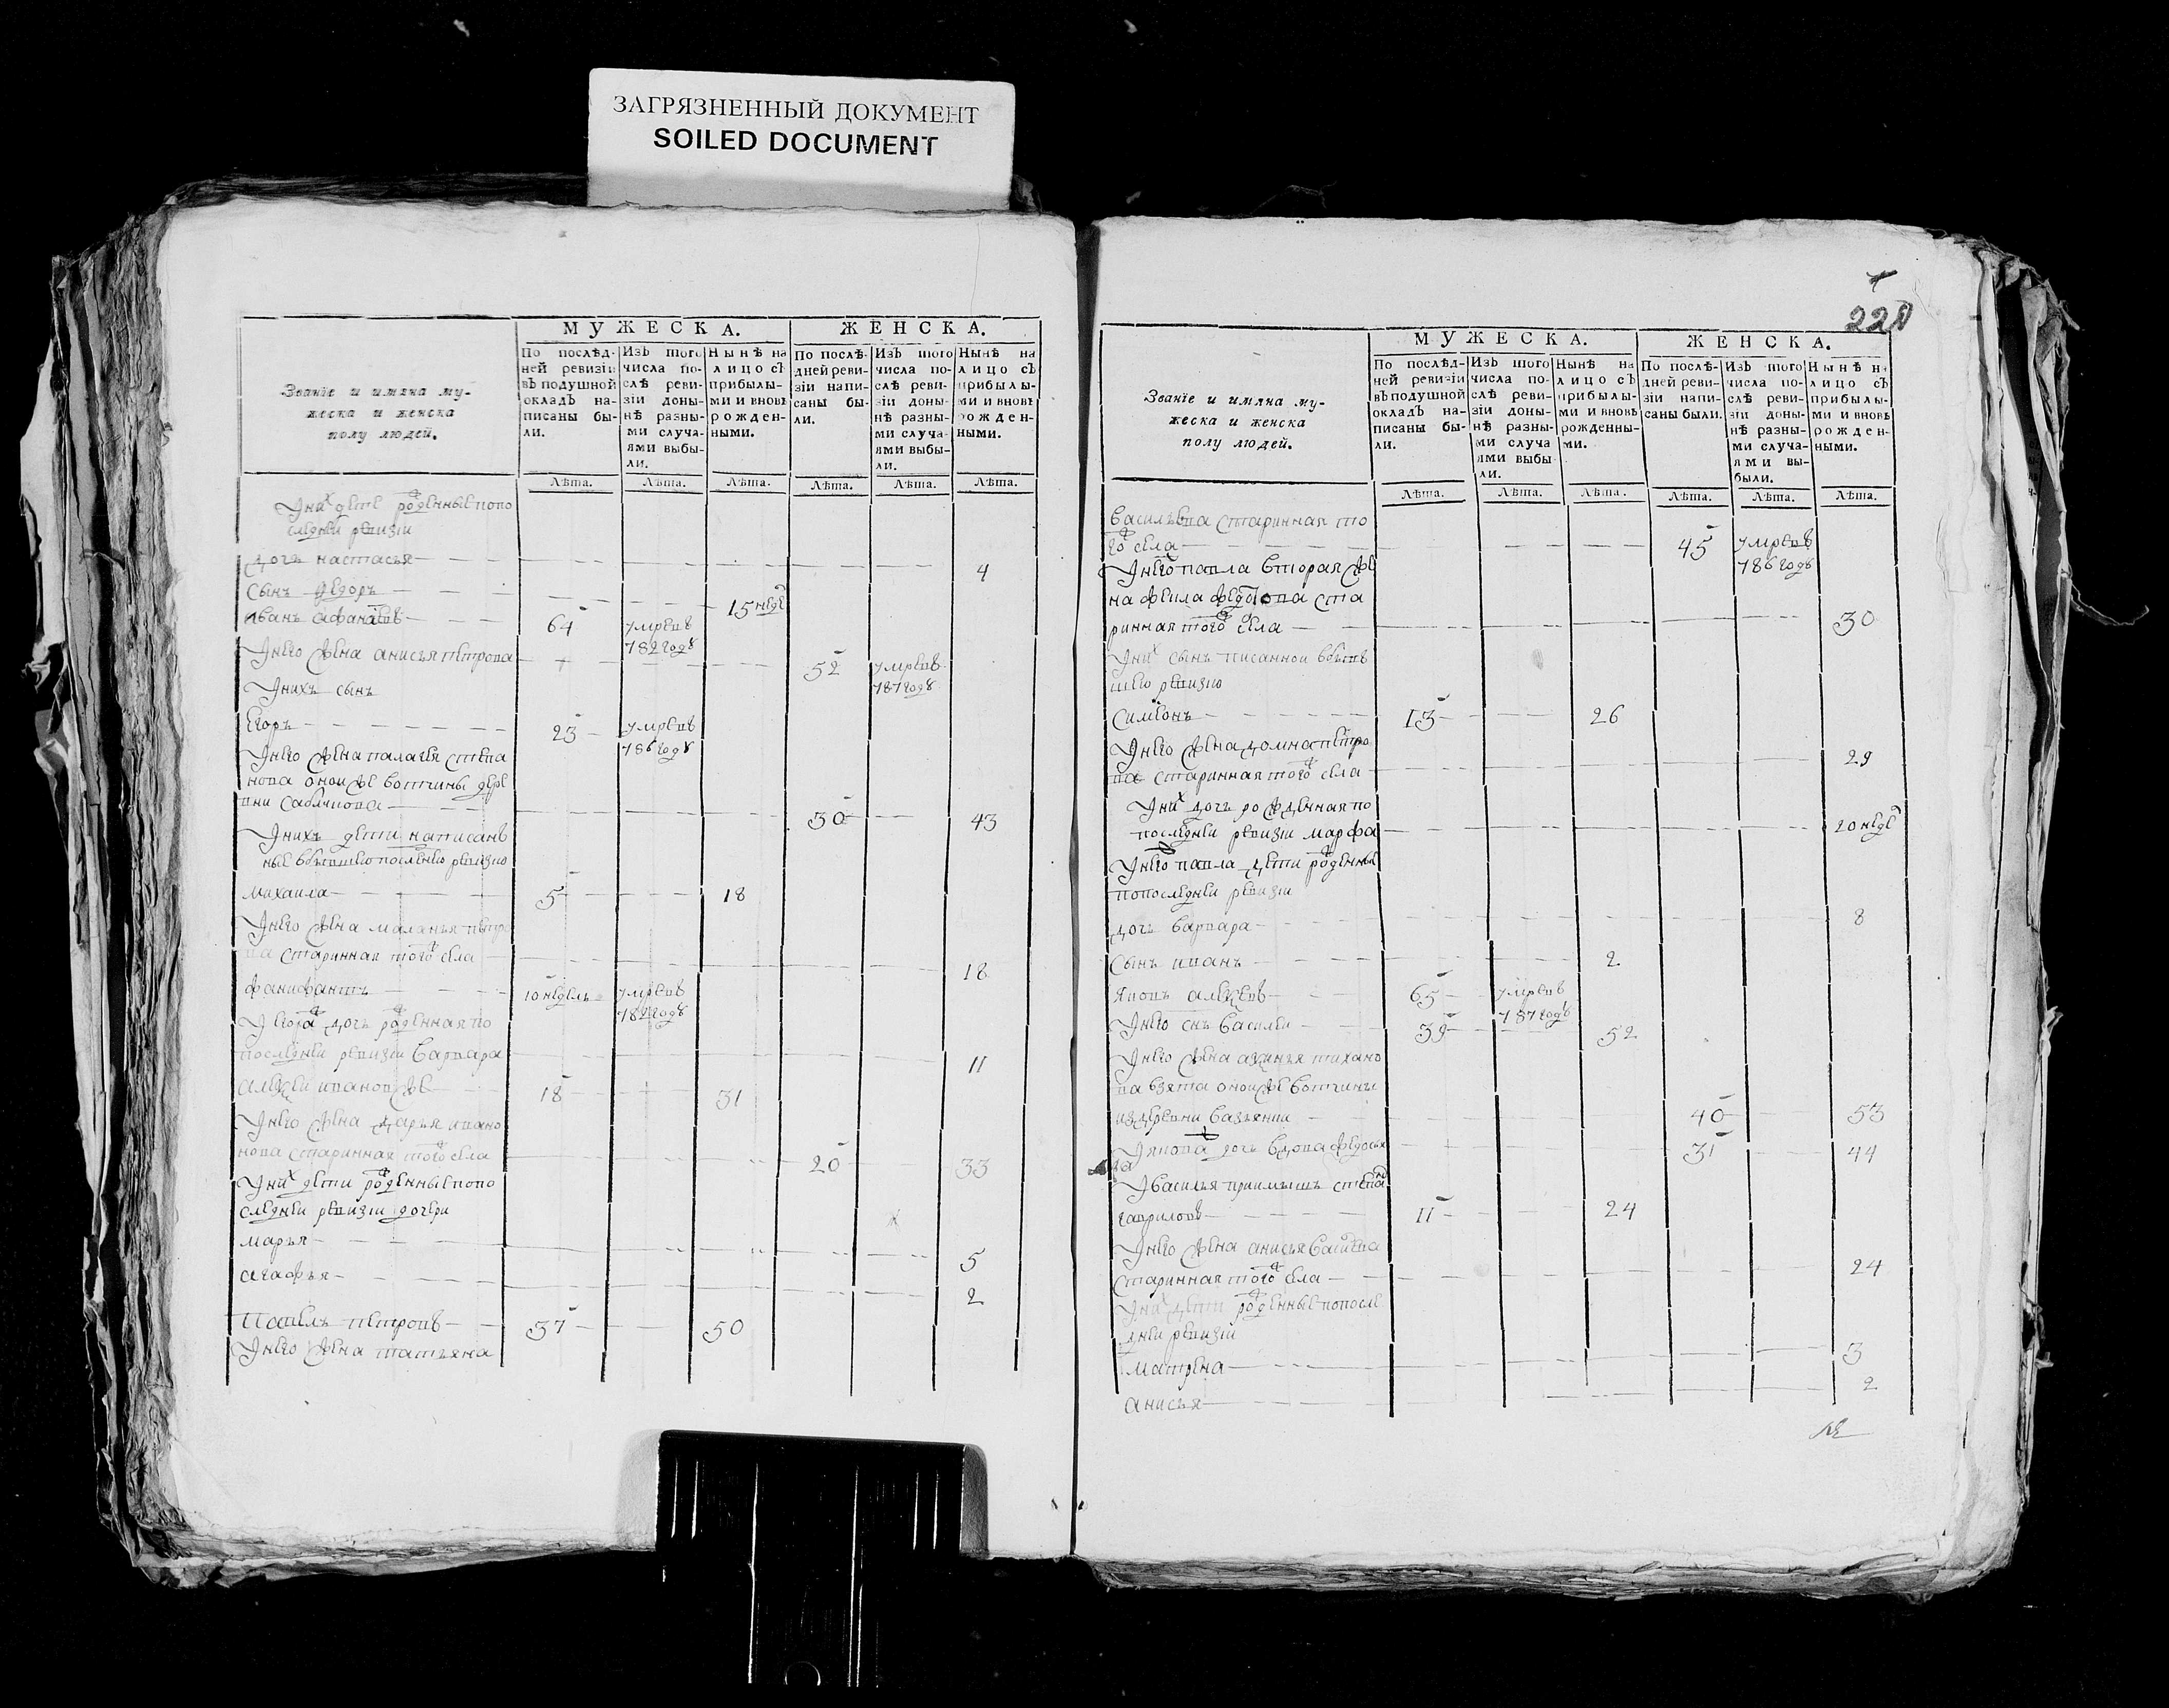 ЗАГРЯЗНЕННЫЙ ДОКУМЕНТ
SOILED DOCUMENT
МУЖЕСКА. ЖЕНСКА.
Званїе и имяна му-
жеска и женска
полу людей.
По послѣд-
ней ревизіи
въ подушной
окладъ на-
писаны бы-
ли.
Изъ того
числа по-
слѣ реви-
зіи доны-
нѣ разны-
ми случа-
ями выбы-
ли.
Нынѣ на
лицо съ
прибылы-
ми и вновь
рожден-
ными.
По послѣ-
дней реви-
зіи напи-
саны бы-
ли.
Изъ того
числа по-
слѣ реви-
зіи доны-
нѣ разны-
ми случа-
ями выбы-
ли.
Нынѣ на
лицо съ
прибылы-
ми и вновь
рожден-
ными.
Лѣта. Лѣта. Лѣта. Лѣта. Лѣта. Лѣта.
У них дети рожденные попо
следней ревизии
дочь настасья 4
сынъ федоръ 15 недел
иванъ афанасьев 64 умре в
782 году
У нево жена анисья петрова 52 умре в
787 году
У нихъ сынъ
Егоръ 23 умре в
786 году
У нево жена палагея степа
нова оной же вотчины дере
вни 30 43
У нихъ дети написан
ные в бывшею последнею ревизию
михаила 5 18
У нево жена маланья петро
ва старинная того ж села 18
фанифантъ 10 недель умре в
782 году
У егора дочь рожденная по
последней ревизии варвара 11
алексей иванов же 18 31
У нево жена дарья ивано
нова старинная того ж села 20 33
У них дети рожденные попо
следней ревизии дочери
марья 5
агафья 2
Павелъ петровъ 37 50
У нево жена татьяна
228
МУЖЕСКА. ЖЕНСКА.
Званїе и имяна му-
жеска и женска
полу людей.
По послѣд-
ней ревизіи
въ подушной
окладъ на-
писаны бы-
ли.
Изъ того
числа по-
слѣ реви-
зіи доны-
нѣ разны-
ми случа
ями выбы
ли.
Нынѣ на
лицо съ
прибылы-
ми и вновь
рожденны-
ми.
По послѣ-
дней реви-
зіи напи-
саны были.
Изъ того
числа по-
слѣ реви-
зіи доны-
нѣ разны-
ми случа-
ями вы-
были.
Нынѣ на
лицо съ
прибылы-
ми и вновь
рожден-
ными.
Лѣта. Лѣта. Лѣта. Лѣта. Лѣта. Лѣта.
васильева старинная то
го ж села 45 умре в
786 году
У нево павла вторая же
на фекла федотова ста
ринная того ж села 30
У них сынъ писанной в быв
шею ревизию
симионъ 13 26
У нево жена домна петро
ва старинная того ж села 29
У них дочь рожденная по
последней ревизии марфа 20 недел
У нево павла дети рожденные
попоследней ревизии
дочь варвара 8
сынъ иванъ 2
яковъ алексеев 65 умре в
787 году
У нево сынъ василей 39 52
У нево жена аксинья тихано
ва взята оной же вотчины
из деревни 40 53
У якова дочь вдова федосья 31 44
У василья приимышъ степан
гаврилов 11 24
У нево жена анисья
старинная того ж села 24
У них дети рожденные попосле
дней ревизии
матрена 3
анисья 2